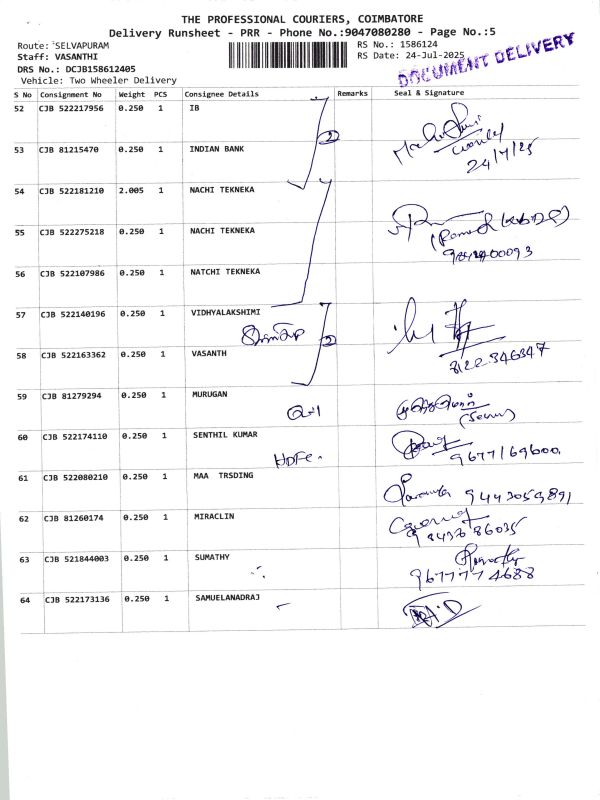 THE PROFESSIONAL COURIERS, COIMBATORE
Delivery Runsheet - PRR - Phone No.:9047080280 - Page No.:5
Route: SELVAPURAM RS No.: 1586124
Staff: VASANTHI RS Date: 24-Jul-2025
DOCUMENT DELIVERY
DRS No.: DCJB158612405
Vehicle: Two Wheeler Delivery
S No Consignment No Weight PCS Consignee Details Remarks Seal & Signature
52 CJB 522217956 0.250 1 IB
2
53 CJB 81215470 0.250 1 INDIAN BANK
24/7/25
54 CJB 522181210 2.005 1 NACHI TEKNEKA
55 CJB 522275218 0.250 1 NACHI TEKNEKA
56 CJB 522107986 0.250 1 NATCHI TEKNEKA
57 CJB 522140196 0.250 1 VIDHYALAKSHIMI
2
58 CJB 522163362 0.250 1 VASANTH
8122346347
59 CJB 81279294 0.250 1 MURUGAN
60 CJB 522174110 0.250 1 SENTHIL KUMAR
HDFC
9677169600
61 CJB 522080210 0.250 1 MAA TRSDING
9443059891
62 CJB 81260174 0.250 1 MIRACLIN
9843686035
63 CJB 521844003 0.250 1 SUMATHY
9677774688
64 CJB 522173136 0.250 1 SAMUELANADRAJ